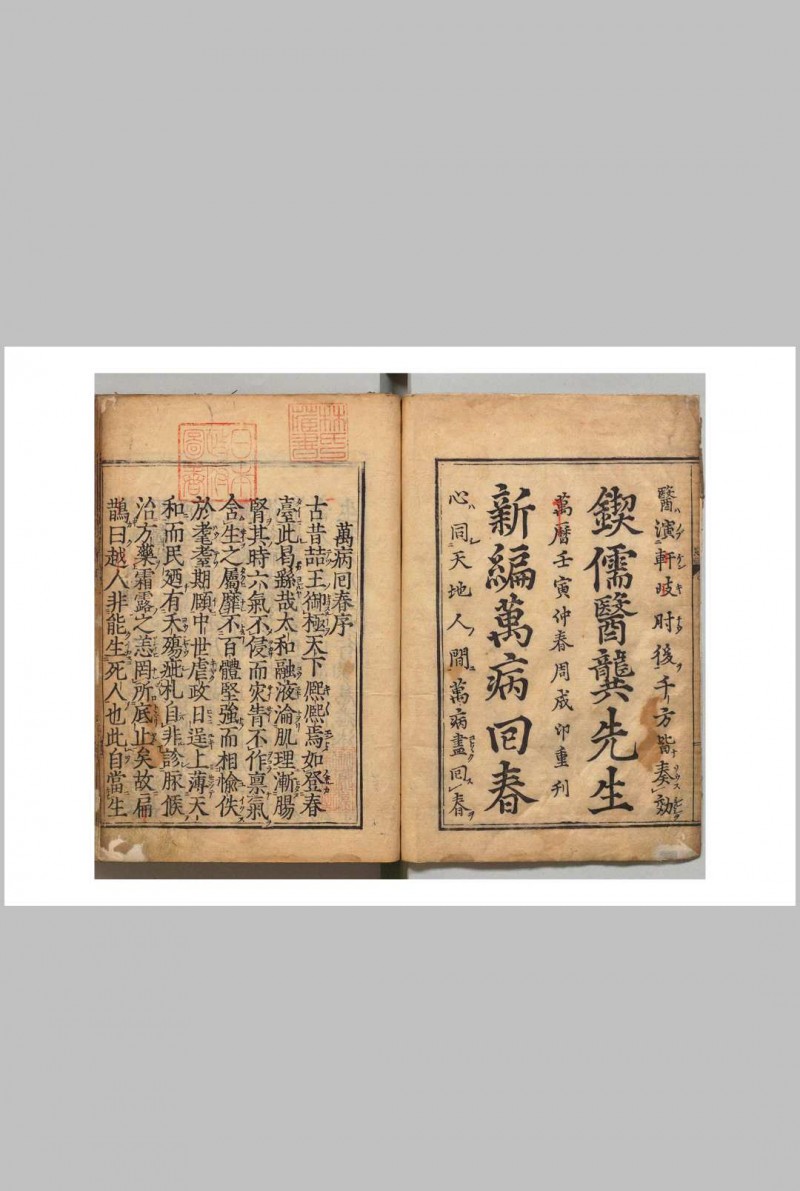 醫演軒岐肘後千方皆奏効
鍥儒醫龔先生
萬曆壬寅仲春周成卯重刊
新編萬病回春
心同天地人間萬病盡回春
萬病回春序
古昔喆王御極天下熈熈焉如登春
臺此曷繇哉太和融液淪肌理漸腸
腎其時六氣不侵而灾眚不作禀氣
含生之屬靡不百體堅強而相愉佚
於耄耋期頤中世虐政日逞上薄天
和而民廼有夭殤疵札自非診脉候
治方藥霜露之恙罔所底止矣故扁
鵲曰越人非能生死人也此自當生
日本
圖書